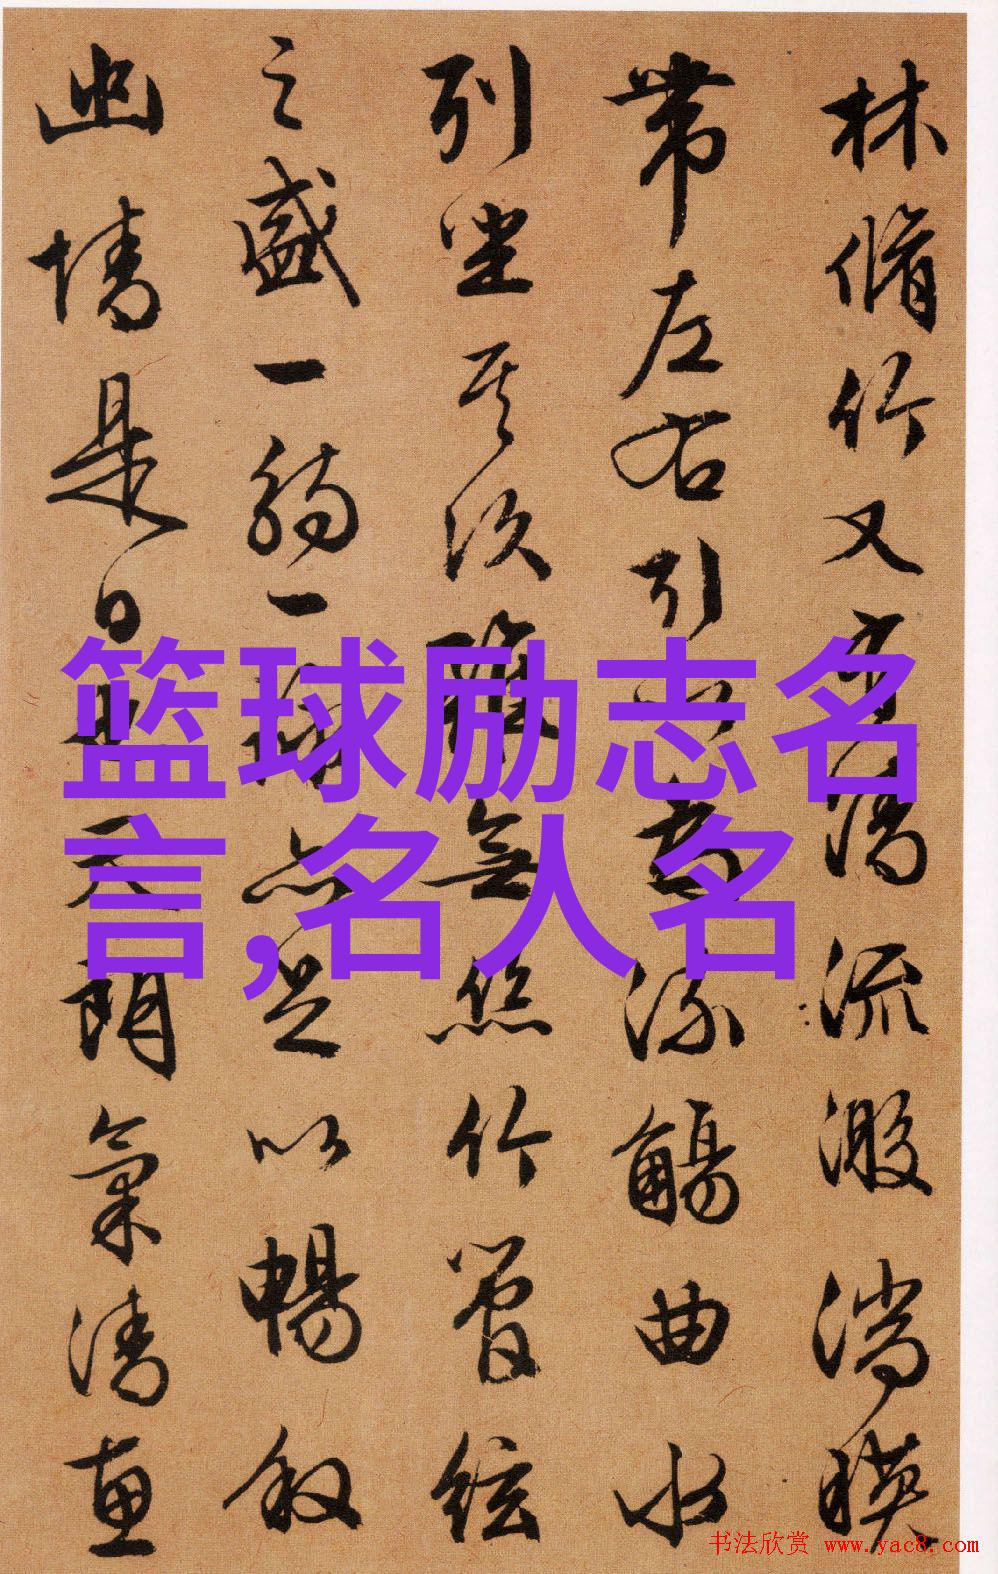 林脩竹又有清流激湍暎
帶左右引以為流觴曲水
列坐其次雖無絲竹管絃
之盛一觴一詠亦足以暢叙
幽情是日也天朗氣清惠
篮球励志名
言,名人名
书法欣赏 www.yac8.com